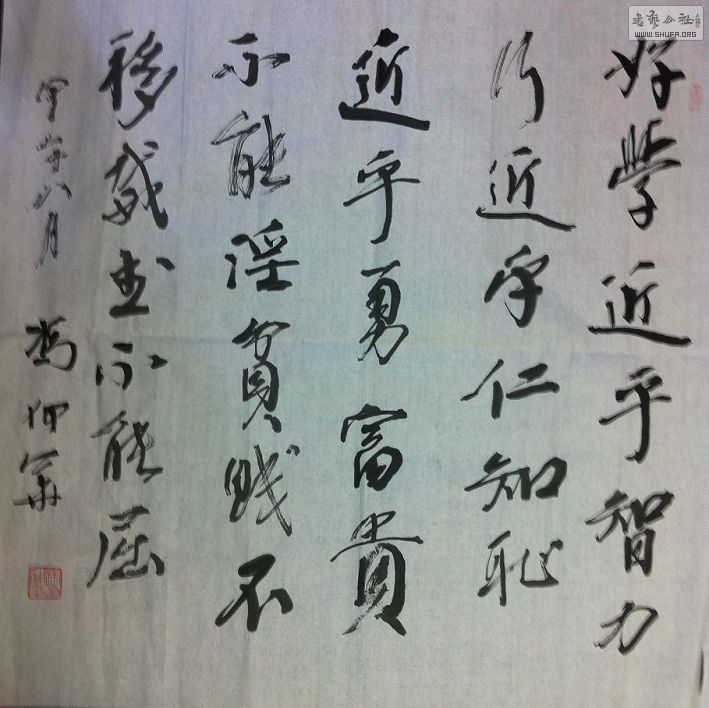 好學近乎智力
行近乎仁知恥
近乎勇富貴
不能淫貧賤不
移威武不能屈
甲午八月 馮仰
書藝公社
WWW.SHUFA.ORG